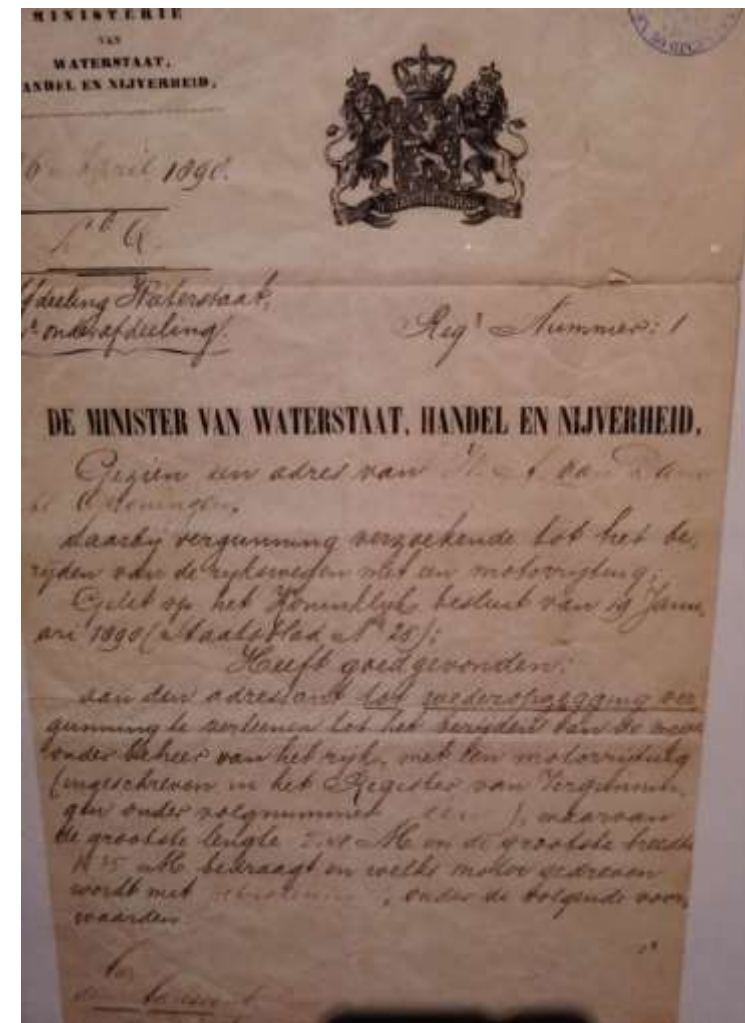 MINISTERIE
VAN
WATERSTAAT,
ANDEL EN NIJVERHEID,
April 1898.
fdeeling Waterstaat,
onderafdeeling.
Reg^r Nummer: 1
DE MINISTER VAN WATERSTAAT, HANDEL EN NIJVERHEID,
Gezien een adres van van
Groningen,
daarbij vergunning verzoekende tot het be-
rijden van de rijkswegen met een motorrijtuig;
Gelet op het Koninklijk besluit van 19 Janu-
ari 1898 (Staatsblad N° 25);
Heeft goedgevonden:
aan den adressant tot wederopzegging ver-
gunning te verleenen tot het berijden van de wegen
onder beheer van het rijk, met een motorrijtuig
(ingeschreven in het Register van Vergunnin-
gen onder volgnummer een), waarvan
de grootste lengte M en de grootste breedte
M bedraagt en welks motor gedreven
wordt met , onder de volgende voor-
waarden